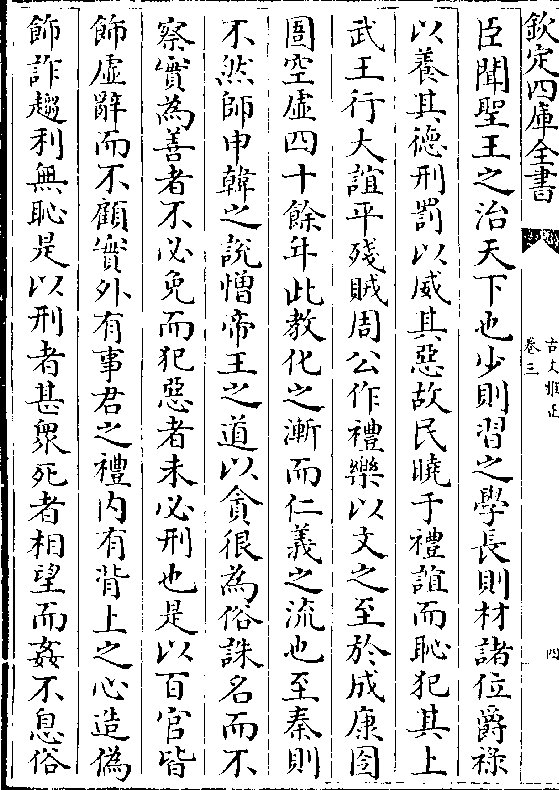 欽定四庫全書
古文雅正
卷三
四
臣聞聖王之治天下也少則習之學長則材諸位爵祿
以養其德刑罰以威其惡故民曉于禮誼而恥犯其上
武王行大誼平殘賊周公作禮樂以文之至於成康囹
圄空虛四十餘年此教化之漸而仁義之流也至秦則
不然師申韓之說憎帝王之道以貪很為俗誅名而不
察實為善者不必免而犯惡者未必刑也是以百官皆
飾虛辭而不顧實外有事君之禮內有背上之心造偽
飾詐趨利無恥是以刑者甚衆死者相望而姦不息俗